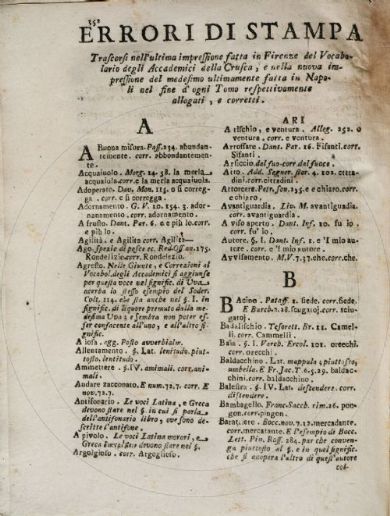 252
ERRORI DI STAMPA
Trascorsi nell'ultima impressione fatta in Firenze del Vocabo-
lario degli Accademici della Crusca, e nella nuova im-
pressione del medesimo ultimamente fatta in Napo-
li nel fine d'ogni Tomo respettivamente
allogati, e corretti.
A
A Buona misora. Pass. 234. abbundan-
temente. corr. abbondantemen-
te.
Acquaiuolo. Morg. 14. 58. la merla
acquaiuola. corr. e la merla acquaiuola.
Adoperato. Dav. Mon. 115. o si corregga
. corr. e si corregga.
Adornamento. G. V. 10. 154. 3. ador-
nanamento. corr. adornamento.
A frusto. Dant. Par. 6. o e più lo. corr.
e più lo.
Agilità. e Agilita corr. Agilità
Ago. Spezie di pesce ec. Red. Oss. an. 175.
Rondelizio. corr. Rondelezio.
Agresto. Nelle Giunte, e Correzioni al
Vocabol. degli Accademici si aggiunse
per questa voce nel signific. di Uva
acerba lo stesso esempio del Soder.
Colt. 114. che sta anche nel §. I. in
signific. di liquore premuto dalla me-
desima Uva; e sembra non poter es-
ser confacente all'uno, e all'altro si-
gnific.
A iosa. agg. Posto avverbialm.
Allentamento. §. Lat. lentitudo. piut-
tosto, lentitudo.
Ammettere. §. IV. animali. corr. ani-
mali.
Audare zacconato. E num. 72. 7. corr. E
nov. 72. 7.
Antifonario. Le voci Latina, e Greca
devono stare nel § in cui si parla
dell'antifonario libro, ove sono de-
scritte l'antifone.
A pivolo. Le voci Latina, e
Greca devono stare nel §.
Argolgioso. corr. Argoglioso.
ARI
A rischio, e ventura. Alleg. 252. o
ventura. corr. e ventura.
Arrossare. Dant. Par. 16. Fisanti. corr.
Sifanti.
Arsiccio. del fuo. corr. del fuoco.
Arto. Add. Segner. stor. 4. 102. cittadina.
corr. cittadini.
Attorcere. Petr. son. 325. e chiaro. corr.
e chiaro.
Avantiguardia. Liv. M. avantiguardi.
corr. avantiguardia.
A viso aperto. Dant. Inf. 10. fu io.
corr. fu' io.
Autore. §. I. Dant. Inf. 1. e 'l mio au-
tore. corr. e 'l mio autore.
Avvisamento. M. V. 7. 37. che. corr. che
B
Bacino. Pataff. 2. fiede. corr. fiede.
E Burch. 2. 28.
Badalischio. Tesorett. Br. 11. Camel-
li. corr. Cammelli.
Baia. §. I. Varch. Ercol. 101. orecchi.
corr. orecchi.
Baldacchino. Lat. mappula; piuttosto,
umbella. E Fr. Jac. T. 6. 5. 29. baldac-
chini. corr. baldacchino.
Balestro. §. IV. Lat. descendere. corr.
distendere.
Bambagello. Franc. Sacch. rim. 26. pon-
gon. corr. pingon.
Barattiere. Bocc. nov. 7. 12. mercadante.
corr. mercatante. E l'esempio di Bocc.
Lett. Pin. Ross. 284. par che convenga
piuttosto al §. e in quel signific.
che si adopera l'altro di quest'autore
col-